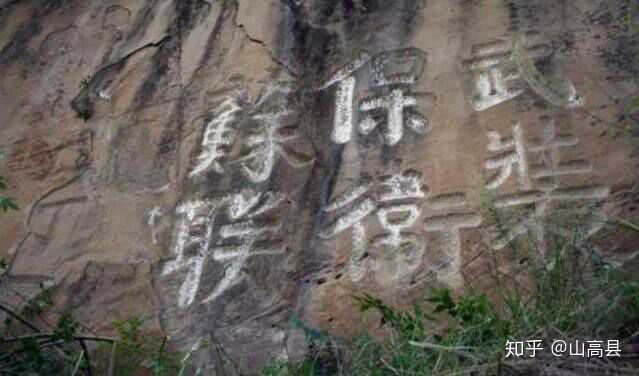 武装
保衛
蘇联
知乎 @山高县